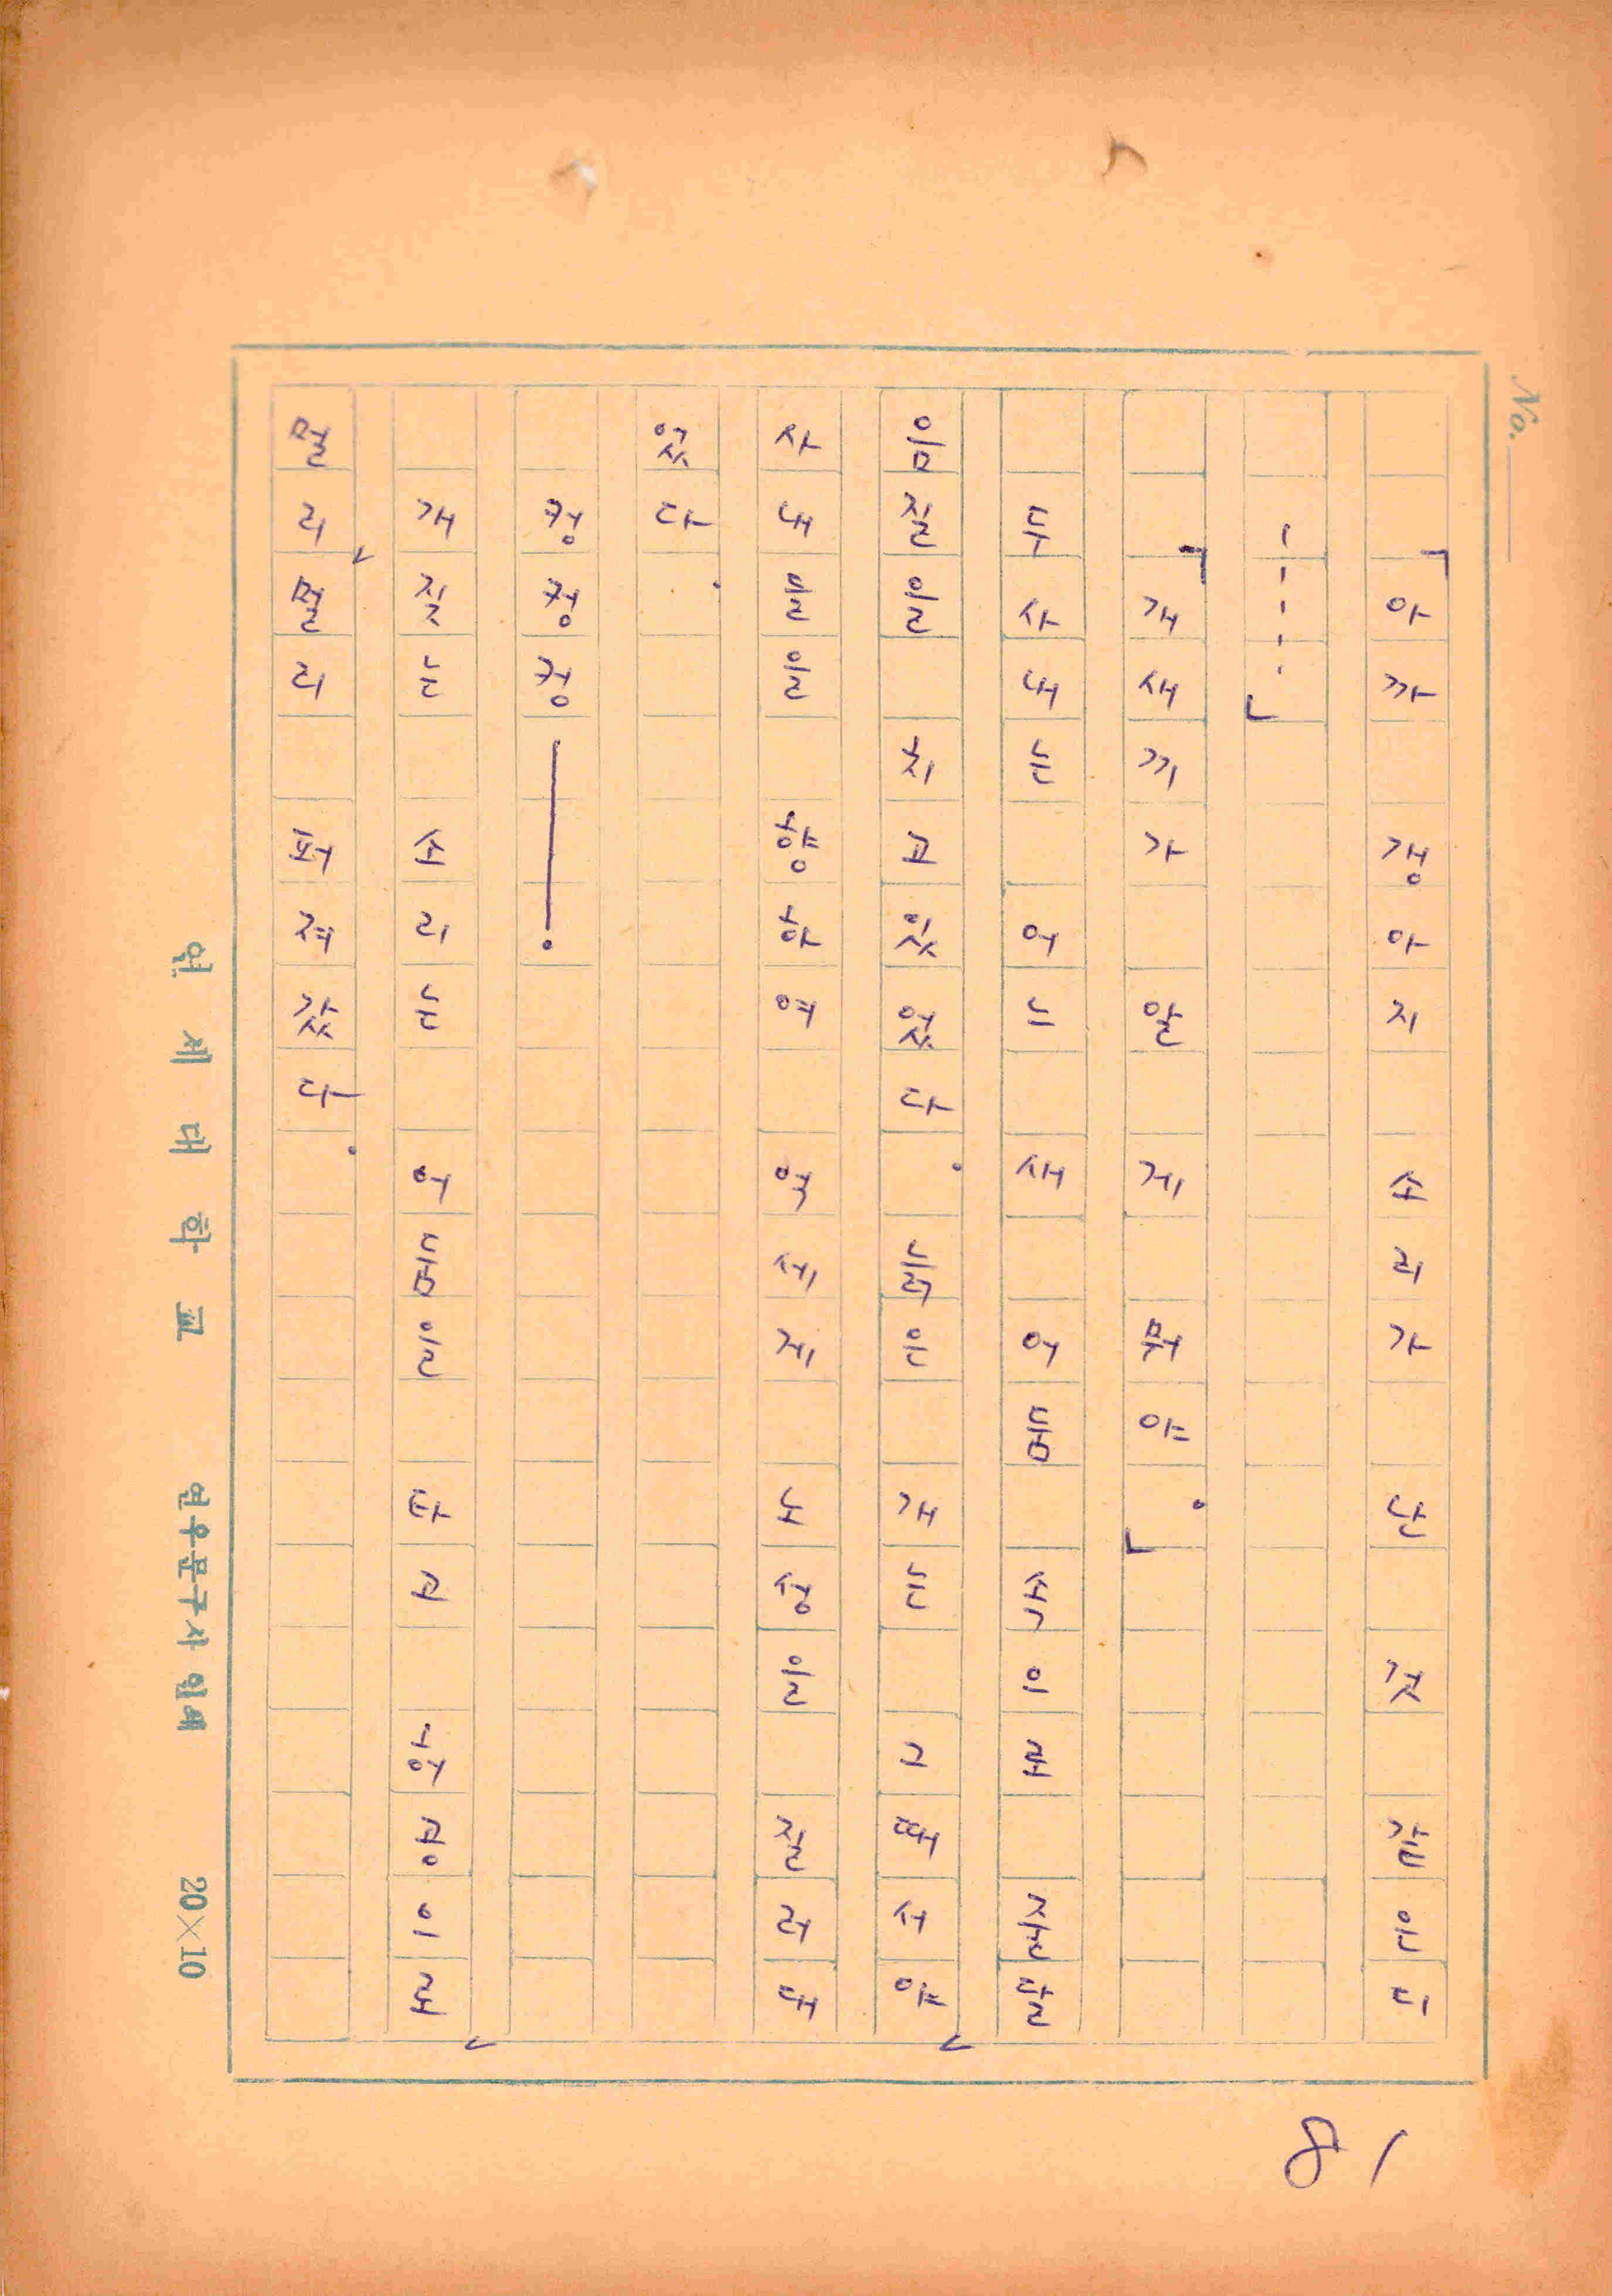 No.
「아까 갱아지 소리가 난 것 같은디
----」
「개새끼가 알 게 뭐야.」
두 사내는 어느 새 어둠 속으로 줄달
음질을 치고 있었다. 늙은 개는 그때서야
사내들을 향하여 억세게 노성을 질러대
었다.
컹컹컹———.
개 짖는 소리는 어둠을 타고 허공으로
멀리 멀리 퍼져 갔다.
연세대학교 연우문구사 인쇄 20×10
81